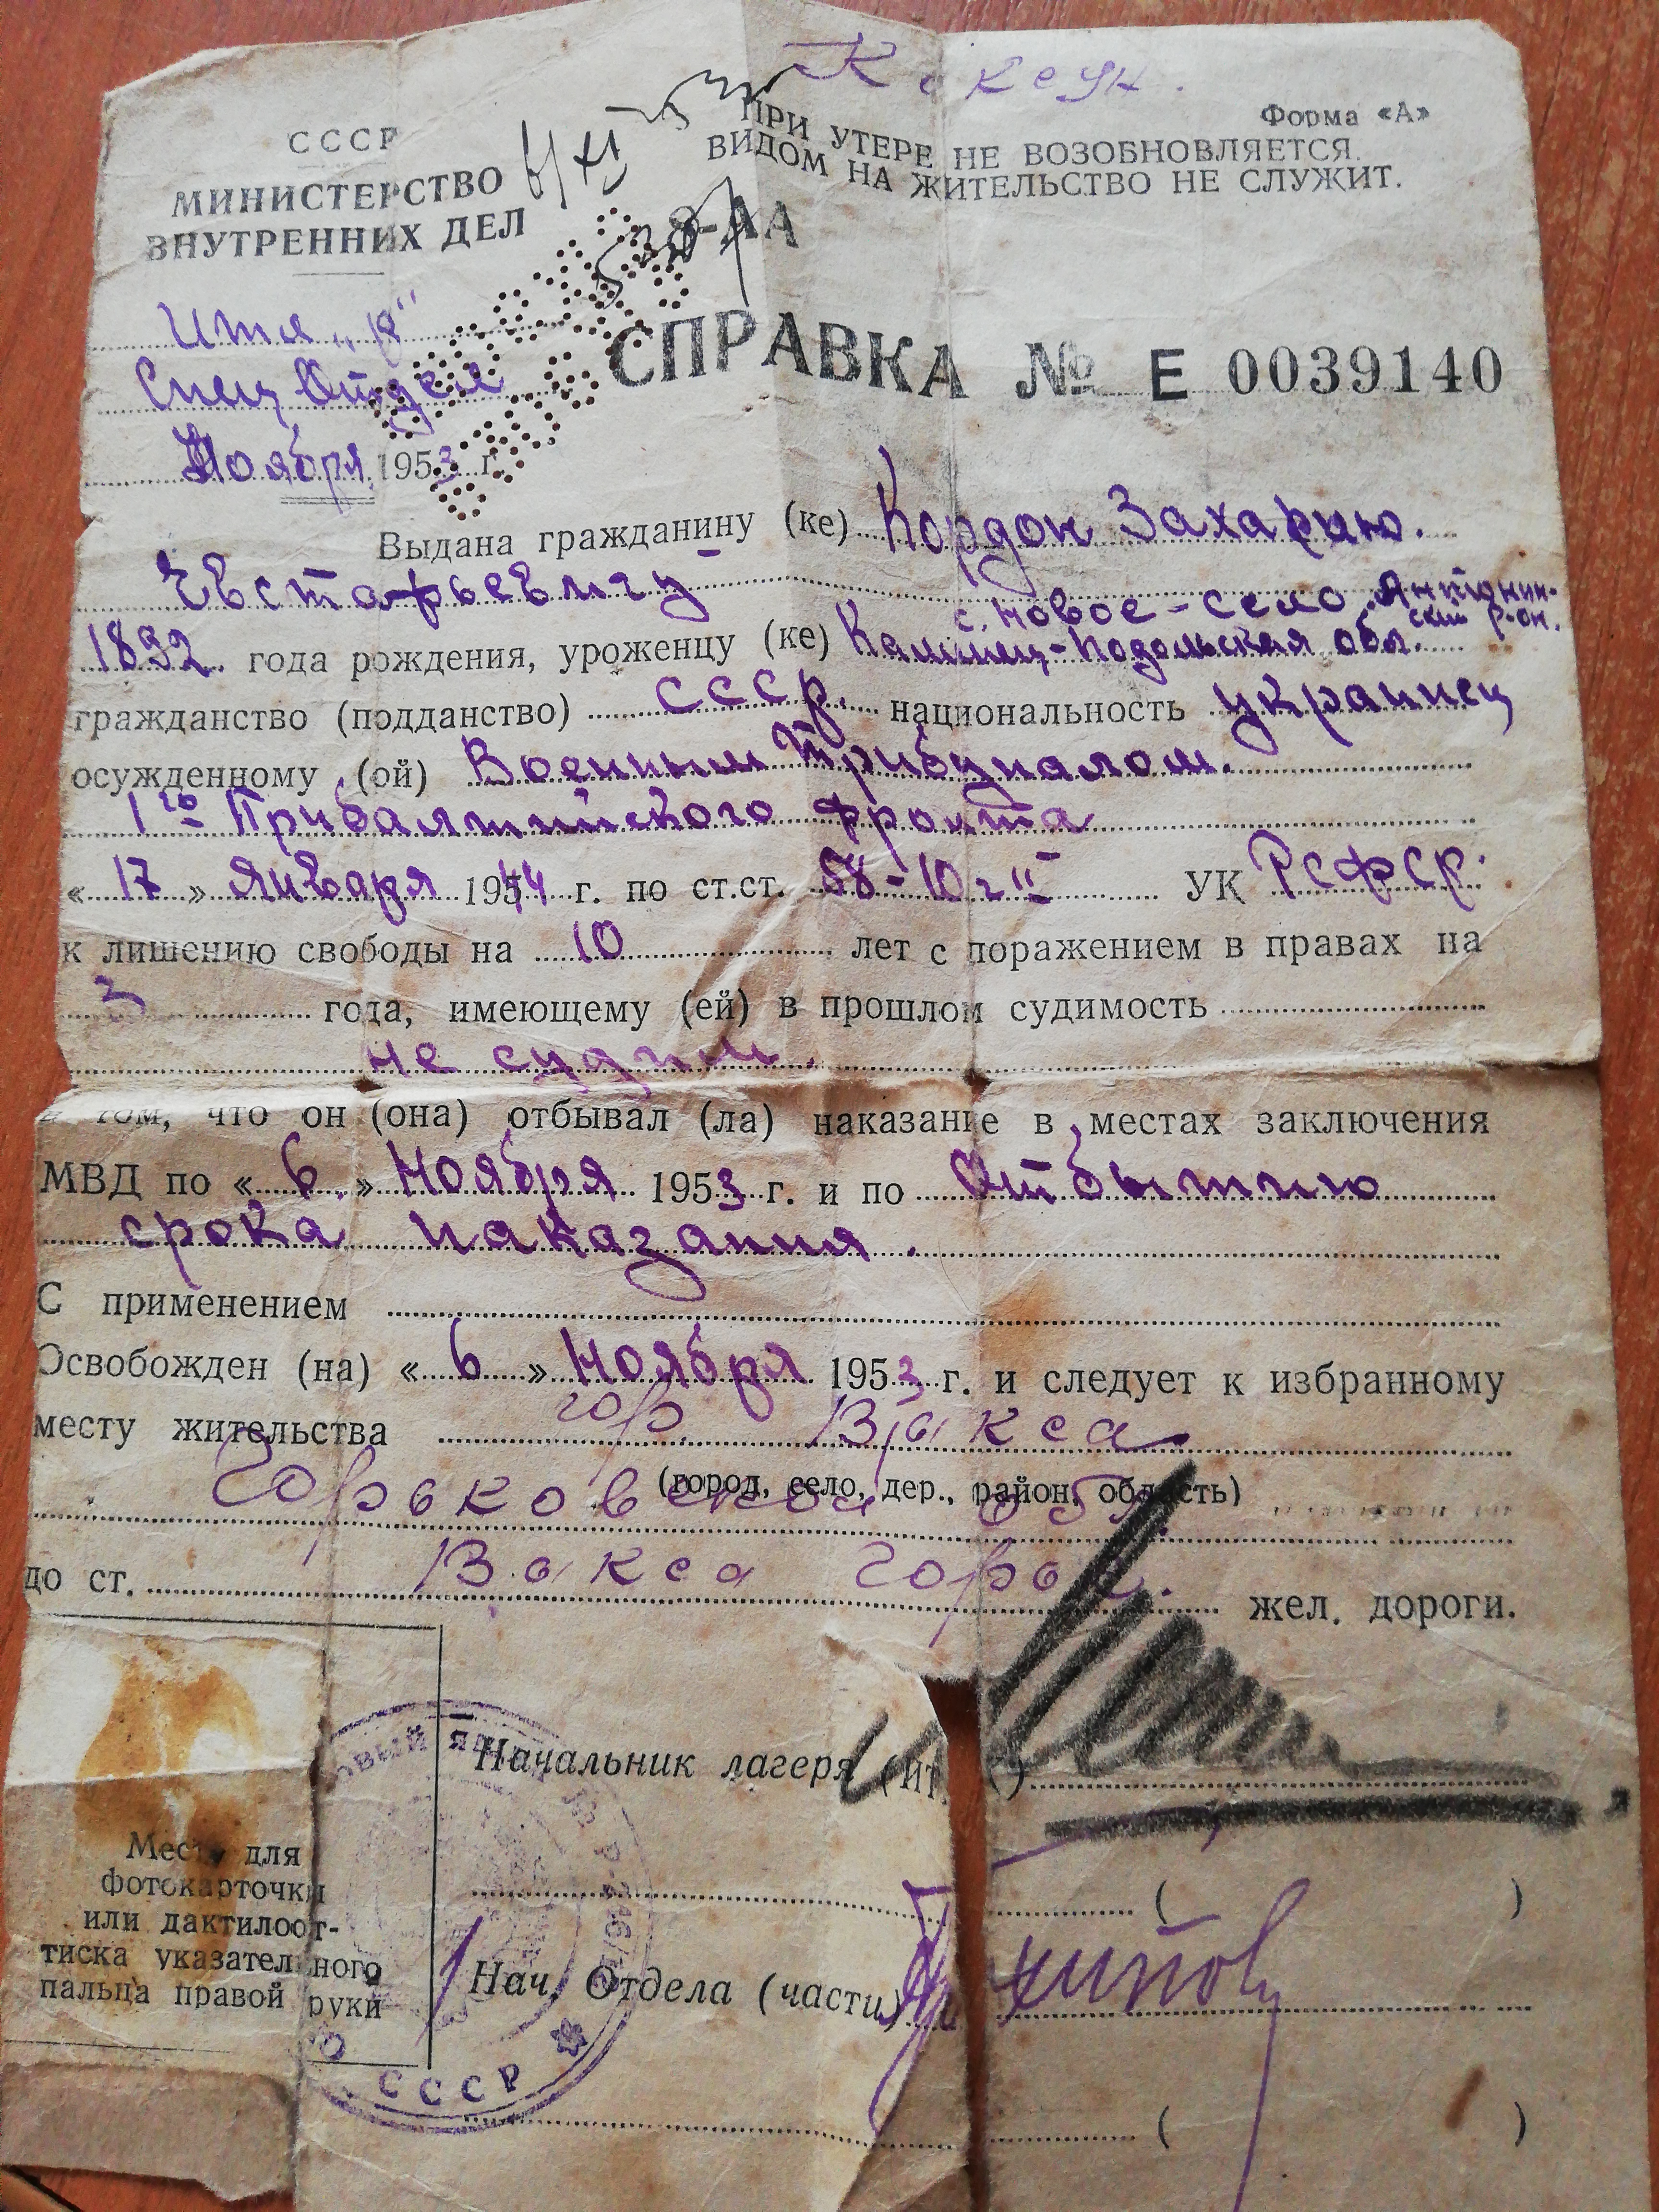 Форма «А»
СССР
МИНИСТЕРСТВО
ВНУТРЕННИХ ДЕЛ
ПРИ УТЕРЕ НЕ ВОЗОБНОВЛЯЕТСЯ.
ВИДОМ НА ЖИТЕЛЬСТВО НЕ СЛУЖИТ.
8-АА
Спец Отдел
СПРАВКА № Е 0039140
Ноября 1953 г.
Выдана гражданину (ке) Кордон Захарию
Евстафьевичу
с. Новое-село, Антонин-
ский р-он.
1892 года рождения, уроженцу (ке) Каминец-Подольская обл.
гражданство (подданство) СССР. национальность украинец
осужденному (ой) Военным Трибуналом.
1го Прибалтийского фронта
« 17 » января 1944 г. по ст.ст. 58-10 ч II УК РСФСР.
к лишению свободы на 10 лет с поражением в правах на
3 года, имеющему (ей) в прошлом судимость
не судим.
в том, что он (она) отбывал (ла) наказание в местах заключения
МВД по « 6. » Ноября 1953 г. и по Отбытию
срока наказания.
С применением
Освобожден (на) « 6 » Ноября 1953 г. и следует к избранному
месту жительства гор. Выкса
(город, село, дер., район, область)
Горьковской обл.
до ст. Выкса Горьк. жел. дороги.
Начальник лагеря (ИТ
( )
Нач. Отдела (части)
( )
Место для
фотокарточки
или дактилоот-
тиска указательного
пальца правой руки
СССР